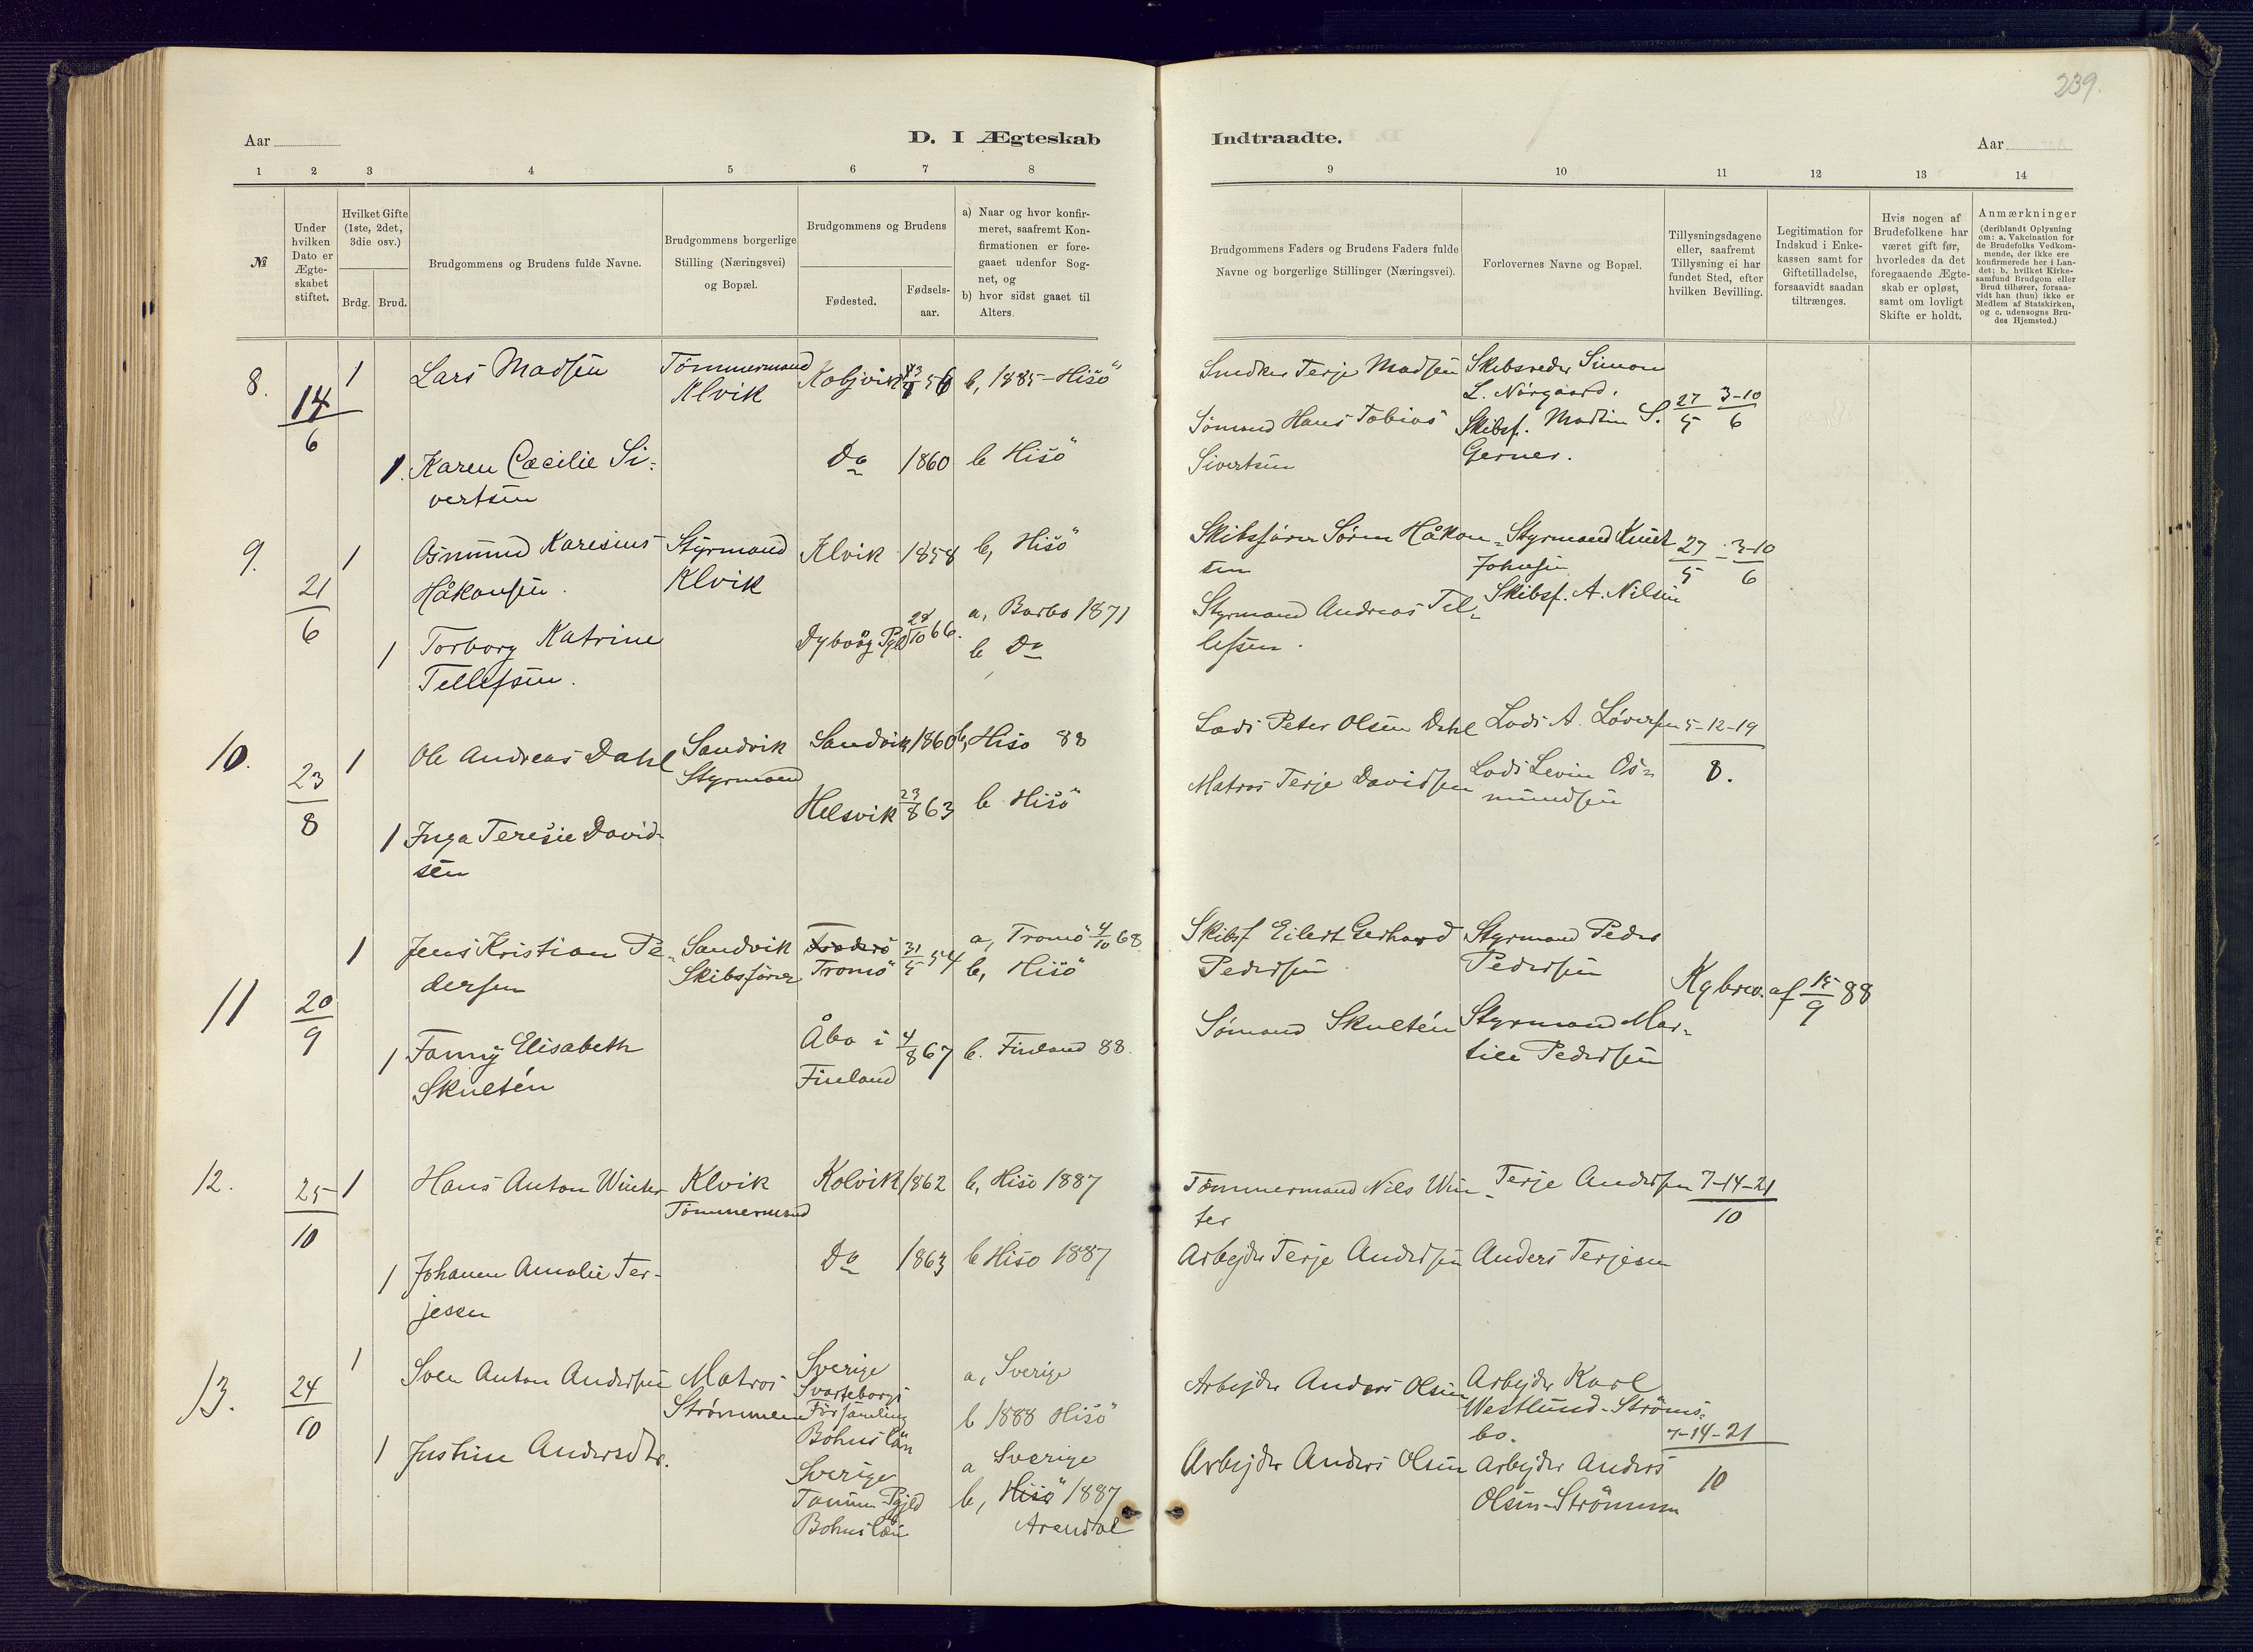 239.
Aar
D. I Ægteskab
Indtraadte.
Aar
1 2 3 4 5 6 7 8
9 10 11 12 13 14
№
Under hvilken Dato er Ægteskabet stiftet.
Hvilket Gifte (1ste, 2det, 3die osv.)
Brdg. Brud.
Brudgommens og Brudens fulde Navne.
Brudgommens borgerlige Stilling (Næringsvei) og Bopæl.
Brudgommens og Brudens
Fødested.
Fødselsaar.
a) Naar og hvor konfirmeret, saafremt Konfirmationen er foregaaet udenfor Sognet, og
b) hvor sidst gaaet til Alters.
Brudgommens Faders og Brudens Faders fulde Navne og borgerlige Stillinger (Næringsvei).
Forlovernes Navne og Bopæl.
Tillysningsdagene eller, saafremt Tillysning ei har fundet Sted, efter hvilken Bevilling.
Legitimation for Indskud i Enkekassen samt for Giftetilladelse, forsaavidt saadan tiltrænges.
Hvis nogen af Brudefolkene har været gift før, hvorledes da det foregaaende Ægteskab er opløst, samt om lovligt Skifte er holdt.
Anmærkninger (deriblandt Oplysning om: a. Vakcination for de Brudefolks Vedkommende, der ikke ere konfirmerede her i Landet; b. hvilket Kirkesamfund Brudgom eller Brud tilhører, forsaavidt han (hun) ikke er Medlem af Statskirken, og c. udensogns Brudes Hjemsted.)
8. 14/6 1 Lars Madsen
Tömmermand Klvik
Koljvik 56 b, 1885 - Hisö
Smedker Terje Madsen
Skibsreder Simon
L. Nörgaard.
27/5 3-10/6
1. Karen Cæcilie Si-
vertsen
Do 1860 b Hisö
Sömand Hans Tobias
Sivertsen
Skibsf. Martin S.
Gerner.
9. 21/6 1 Osmund Karesius
Håkonsen.
Styrmand
Klvik
Klvik 1858 b, Hisö
Skibsförer Sören Håkon-
sen
Styrmand Knut
Johnsen
27/5 - 3-10/6
1 Torborg Katrine
Tellefsen.
Dybvåg Pgld 28/10 66.
a, Barbo 1871
b Do
Styrmand Andreas Tel-
lefsen.
Skibsf. A. Nilsen
10. 23/8 1 Ole Andreas Dahl
Sandvik
Styrmand
Sandvik 1860 b, Hisö 88
Lods Peter Olsen Dahl
Lods A. Löversen
5-12-19/8.
1 Inga Teresie David-
sen
Helsvik 23/8 63 b Hisö
Matros Terje Davidsen
Lods Levin Os-
mundsen
11 20/9 1 Jens Kristian Pe-
dersen
Sandvik
Skibsförer
Tromö 31/5 54
a, Tromö 4/10 68
b, Hisö
Skibsf Eilert Gerhard
Pedersen
Styrmand Peder
Pedersen
Kgbrev. af 15/9 88
1 Fanny Elisabeth
Skultén
Åbo i
Finland
4/8 67 b. Finland 88.
Sömand Skultén
Styrmand Mar-
tin Pedersen
12. 25/10 1 Hans Anton Winter
Klvik
Tömmermand
Kolvik 1862 b, Hisö 1887
Tömmermand Nils Win-
ter
Terje Andersen
7-14-21/10
1 Johanne Amalie Ter-
jesen
Do 1863 b Hisö 1887
Arbejder Terje Andersen
Anders Terjesen
13. 24/10 1 Sven Anton Andersen
Matros
Strömmen
Sverige
Svarteborgs
Församling
Bohuslän
a, Sverige
b 1888 Hisö
Arbejder Anders Olsen
Arbejder Karl
Westlund - Ströms-
bo.
7-14-21/10
1 Justine Andersdtr.
Sverige
Tanum Pgjld
Bohuslän
a Sverige
b, Hisö 1887
Arendal
Arbejder Anders Olsen
Arbejder Anders
Olsen - Strömmen